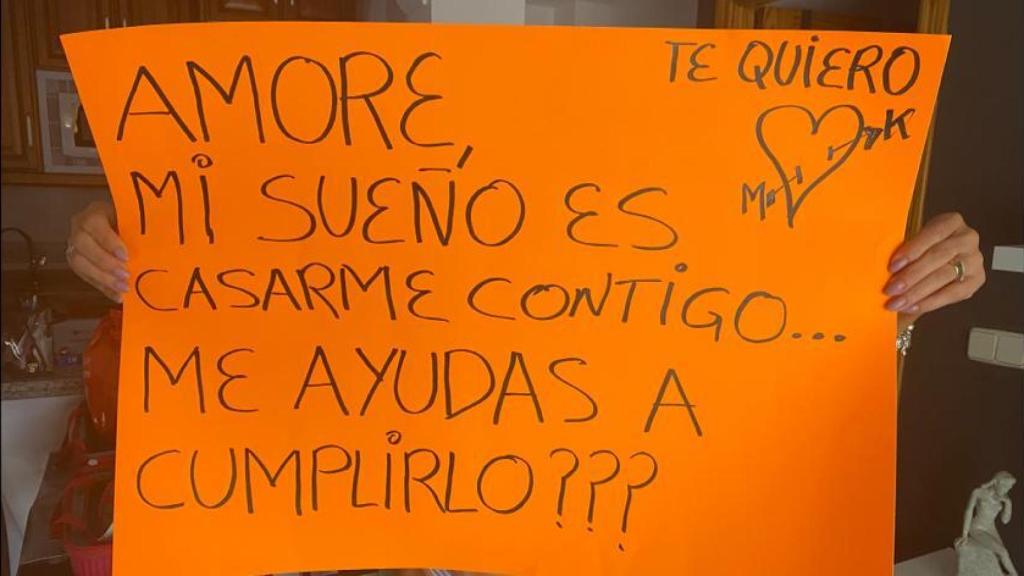 AMORE,
MI SUEÑO ES
CASARME CONTIGO...
ME AYUDAS A
CUMPLIRLO???
TE QUIERO
K
M